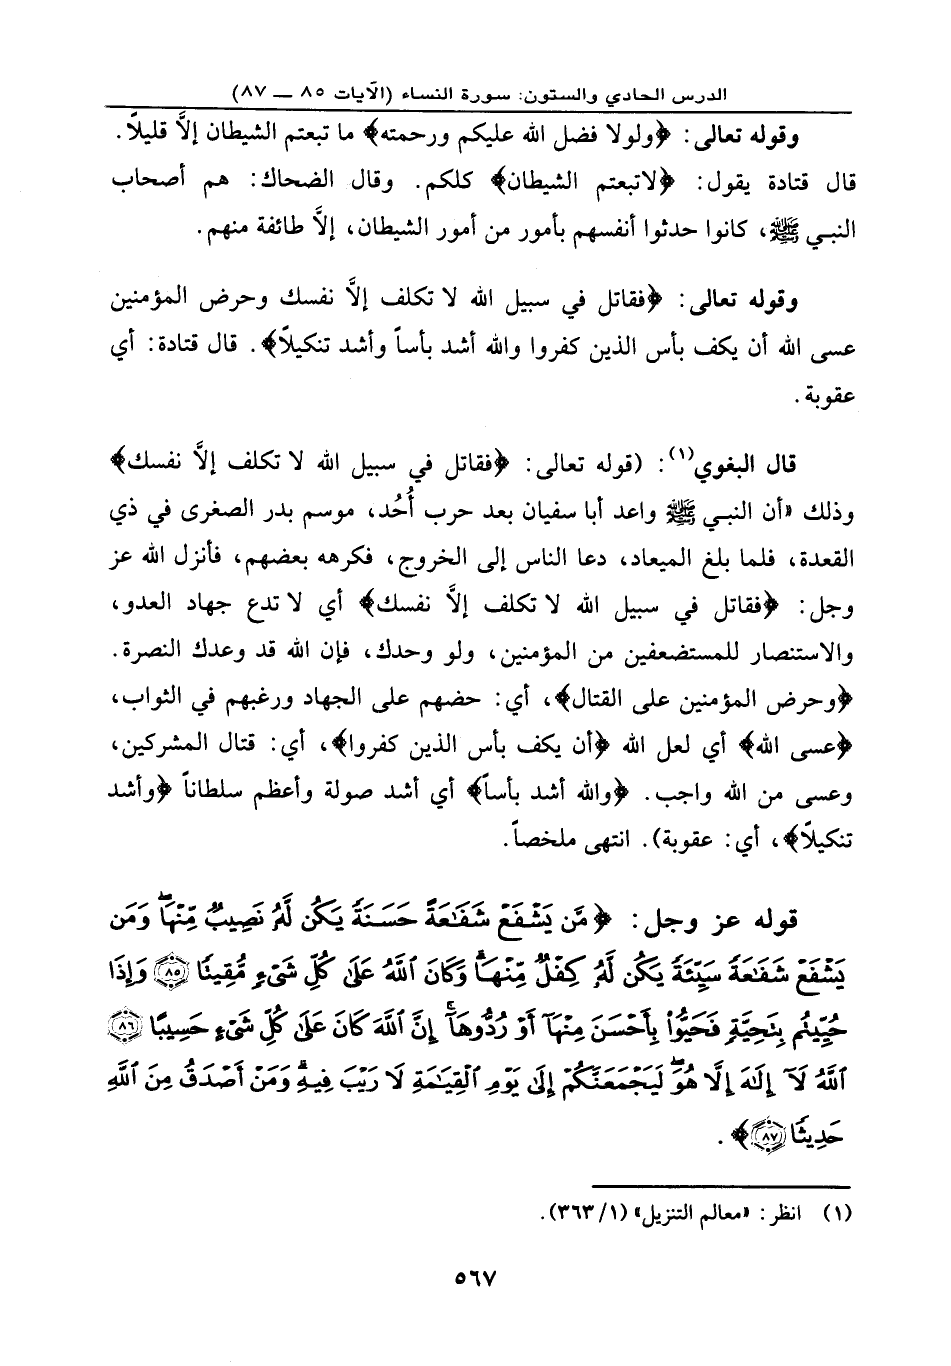 الدرس الحادي والستون: سورة النساء (الآيات ٨٥ ــ ٨٧)
وقوله تعالى: ﴿ولولا فضل الله عليكم ورحمته﴾ ما تبعتم الشيطان إلاَّ قليلاً.
قال قتادة يقول: ﴿لاتبعتم الشيطان﴾ كلكم. وقال الضحاك: هم أصحاب
النبي ﷺ، كانوا حدثوا أنفسهم بأمور من أمور الشيطان، إلاَّ طائفة منهم.
وقوله تعالى: ﴿فقاتل في سبيل الله لا تكلف إلاَّ نفسك وحرض المؤمنين
عسى الله أن يكف بأس الذين كفروا والله أشد بأساً وأشد تنكيلاً﴾. قال قتادة: أي
عقوبة.
قال البغوي(١): (قوله تعالى: ﴿فقاتل في سبيل الله لا تكلف إلاَّ نفسك﴾
وذلك «أن النبي ﷺ واعد أبا سفيان بعد حرب أُحُد، موسم بدر الصغرى في ذي
القعدة، فلما بلغ الميعاد، دعا الناس إلى الخروج، فكرهه بعضهم، فأنزل الله عز
وجل: ﴿فقاتل في سبيل الله لا تكلف إلاَّ نفسك﴾ أي لا تدع جهاد العدو،
والاستنصار للمستضعفين من المؤمنين، ولو وحدك، فإن الله قد وعدك النصرة.
﴿وحرض المؤمنين على القتال﴾، أي: حضهم على الجهاد ورغبهم في الثواب،
﴿عسى الله﴾ أي لعل الله ﴿أن يكف بأس الذين كفروا﴾، أي: قتال المشركين،
وعسى من الله واجب. ﴿والله أشد بأساً﴾ أي أشد صولة وأعظم سلطاناً ﴿وأشد
تنكيلاً﴾، أي: عقوبة). انتهى ملخصاً.
قوله عز وجل: ﴿مَّن يَشْفَعْ شَفَاعَةً حَسَنَةً يَكُن لَّهُ نَصِيبٌ مِّنْهَا وَمَن
يَشْفَعْ شَفَاعَةً سَيِّئَةً يَكُن لَّهُ كِفْلٌ مِّنْهَا وَكَانَ اللَّهُ عَلَىٰ كُلِّ شَيْءٍ مُّقِيتًا ﴿٨٥﴾ وَإِذَا
حُيِّيتُم بِتَحِيَّةٍ فَحَيُّوا بِأَحْسَنَ مِنْهَا أَوْ رُدُّوهَا إِنَّ اللَّهَ كَانَ عَلَىٰ كُلِّ شَيْءٍ حَسِيبًا ﴿٨٦﴾
اللَّهُ لَا إِلَٰهَ إِلَّا هُوَ لَيَجْمَعَنَّكُمْ إِلَىٰ يَوْمِ الْقِيَامَةِ لَا رَيْبَ فِيهِ وَمَنْ أَصْدَقُ مِنَ اللَّهِ
حَدِيثًا ﴿٨٧﴾﴾.
(١) انظر: «معالم التنزيل» (١/ ٣٦٣).
٥٦٧